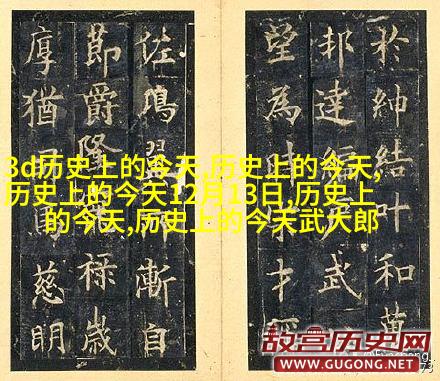 於紳結叶和
邦達編武
望為時才
佐鴻翼漸自
節爵隆祿歲
厚猶慈明
3d历史上的今天,历史上的今天,
历史上的今天12月13日,历史上
的今天,历史上的今天武大郎
故宫历史网
WWW.GUGONG.NET